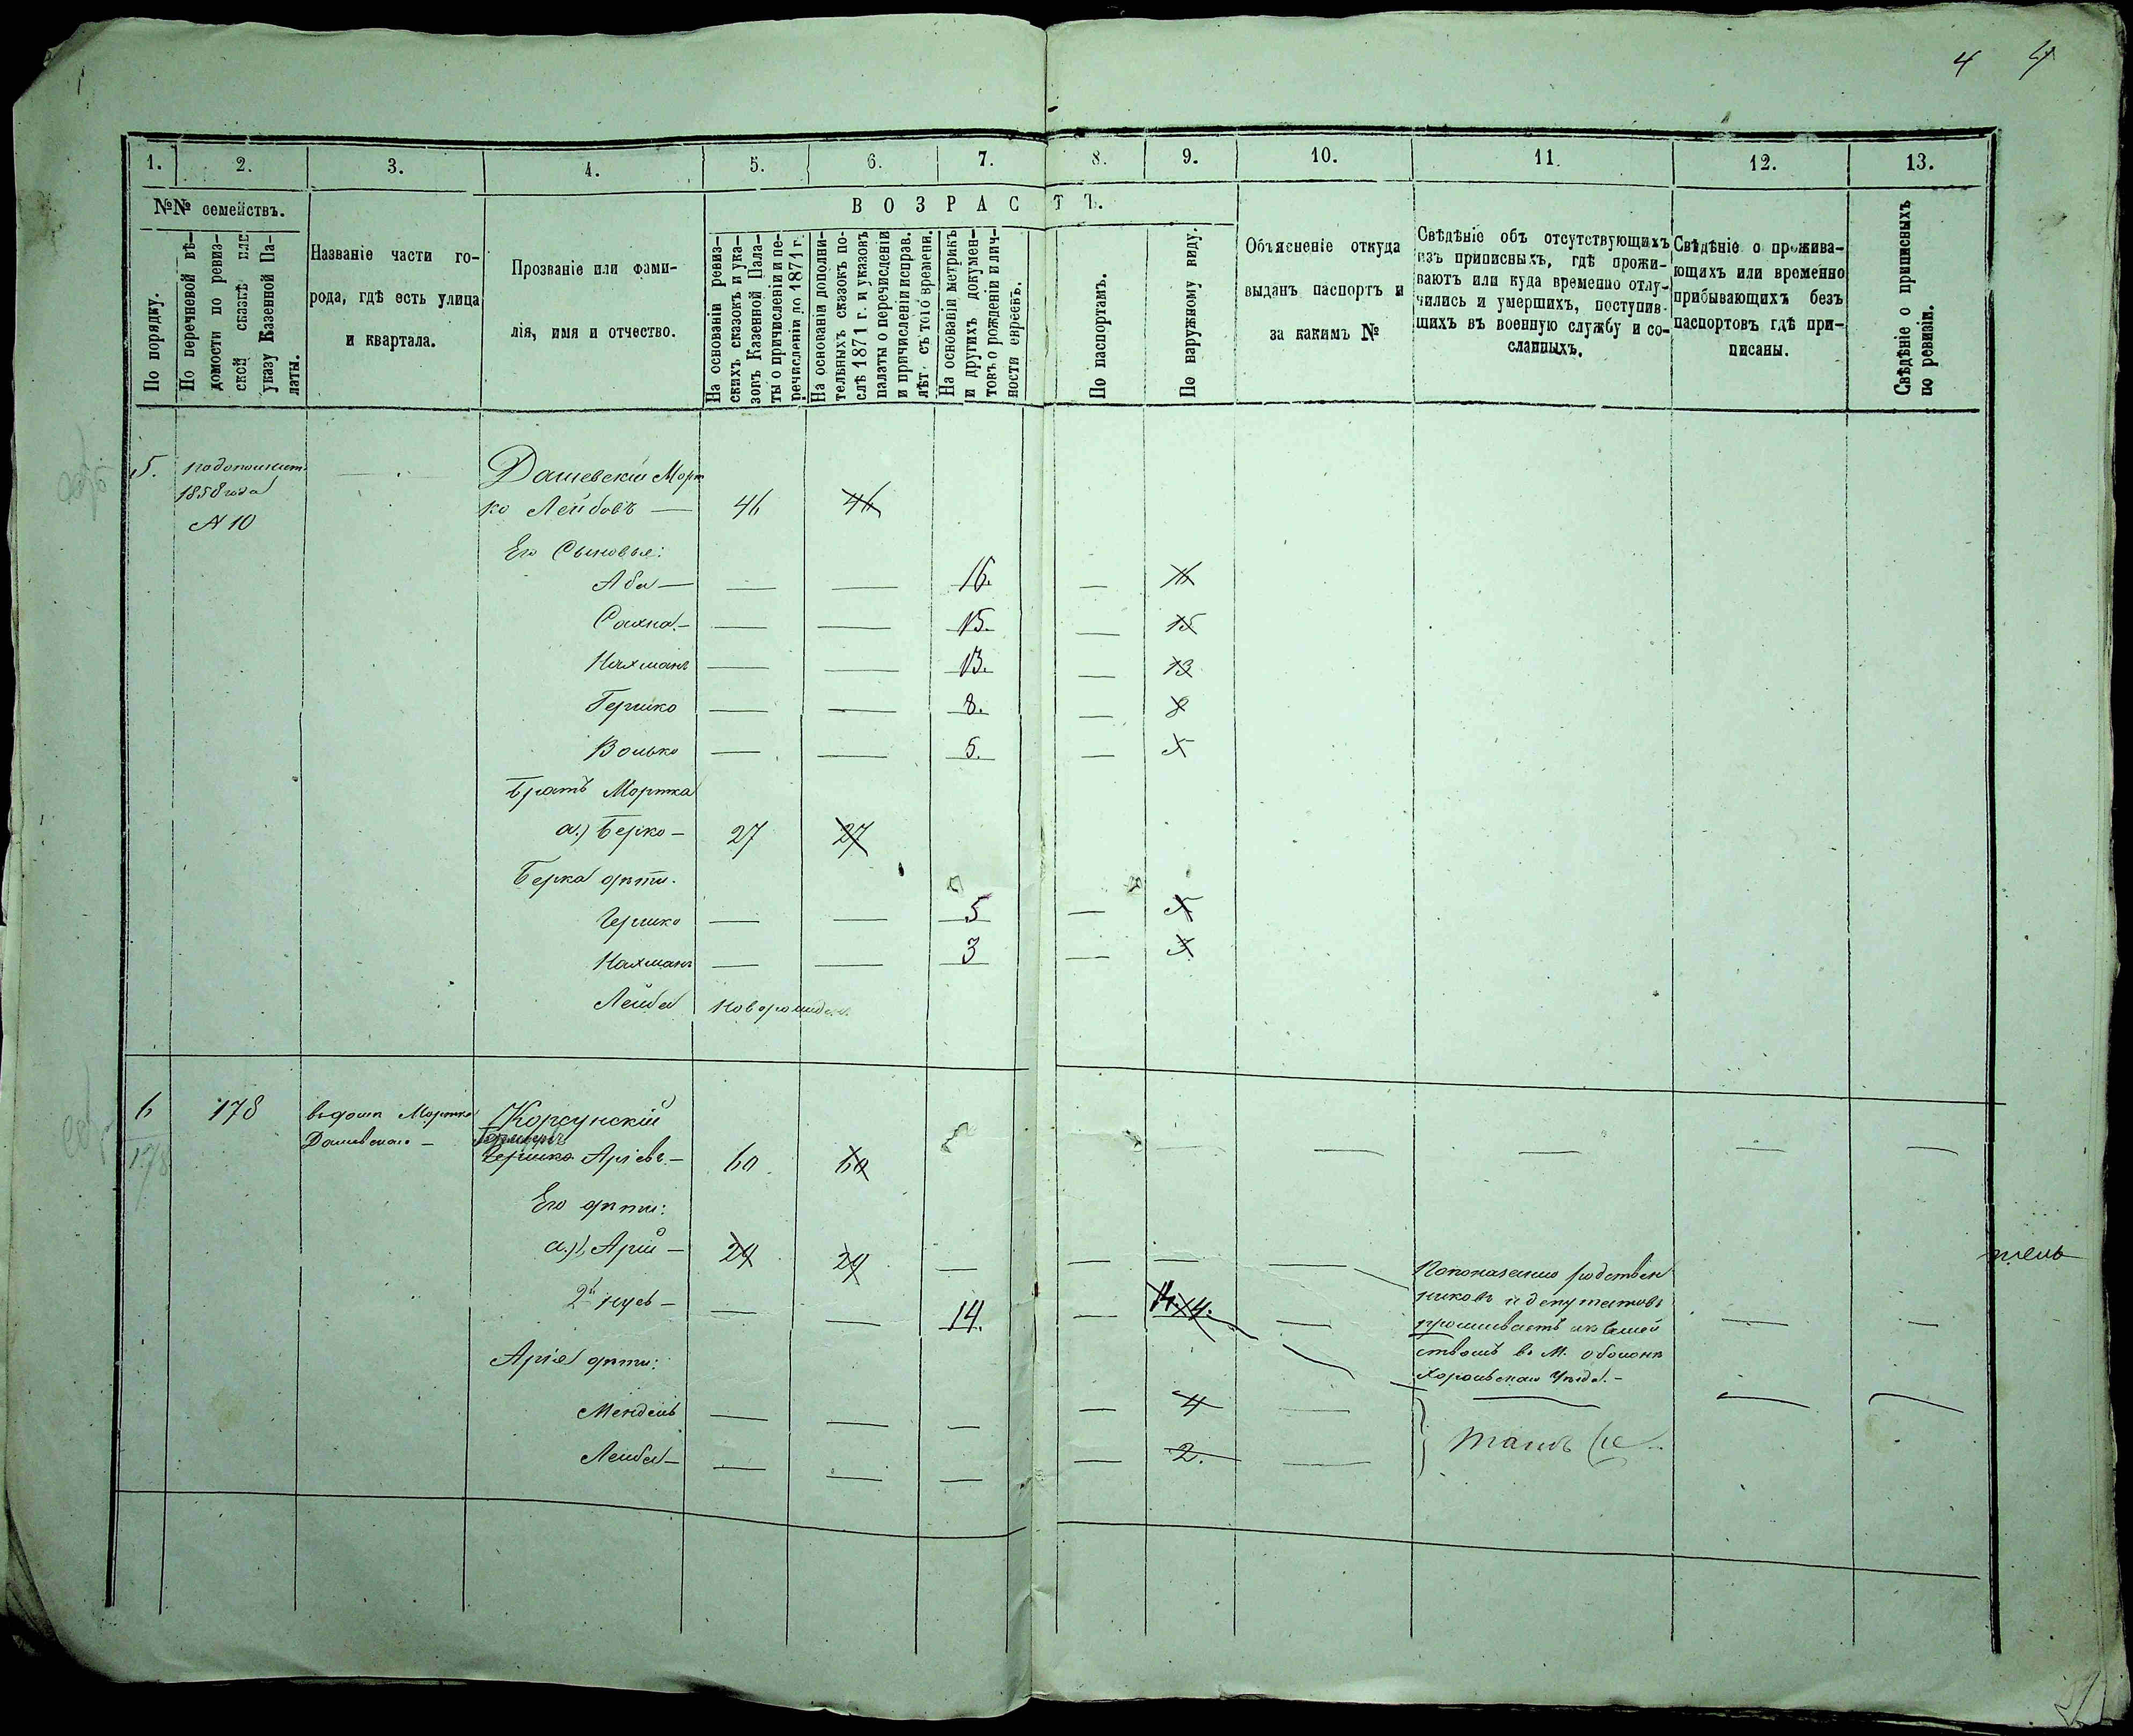 4 4
1. 2. 3. 4. 5. 6. 7. 8. 9. 10. 11. 12. 13.
№№ семействъ.
По порядку.
По перечневой вѣ-
домости по ревиз-
ской сказкѣ или
указу Казенной Па-
латы.
Названіе части го-
рода, гдѣ есть улица
и квартала.
Прозваніе или фами-
лія, имя и отчество.
ВОЗРАСТЪ.
На основаніи ревиз-
скихъ сказокъ и ука-
зовъ Казенной Пала-
ты о причисленіи и пе-
речисленіи до 1871 г.
На основаніи дополни-
тельныхъ сказокъ по-
слѣ 1871 г. и указовъ
палаты о перечисленіи
и причисленіи исправ.
лѣт. съ того времени.
На основаніи метрикъ
и другихъ докумен-
товъ о рожденіи и лич-
ности евреевъ.
По паспортамъ.
По наружному виду.
Объясненіе откуда
выданъ паспортъ и
за какимъ №
Свѣдѣніе объ отсутствующихъ
изъ приписныхъ, гдѣ прожи-
ваютъ или куда временно отлу-
чились и умершихъ, поступив-
шихъ въ военную службу и со-
сланныхъ.
Свѣдѣніе о прожива-
ющихъ или временно
прибывающихъ безъ
паспортовъ гдѣ при-
писаны.
Свѣдѣніе о приписныхъ
по ревизіи.
5. Дашевскій Морт
1858 года
№ 10
ко Лейбовъ — 46 46
Его Сыновья:
Аба — — — 16. — 16
Сахна — — — 15. — 15
Нахманъ — — 13. — 13
Гершко — — 8. — 8
Волько — — 5. — 5
Братъ Мортка
а.) Берко — 27 27
Берка дѣти.
Гершко — — 5 — 5
Нахманъ — — 3 — 3
Лейба новорожден.
6 178 въ домѣ Мортка Корсунскій
Дашевскаго —
178
Гершко Аріевъ — 60 60 — — — — —
Его дѣти:
а.) 1, Арій — 29 29 — — — —
2й нусъ — — — 14. — 14. — — —
По показанію родствен
никовъ и депутатовъ
проживаетъ съ семей
ствомъ въ М. Оболони
Хорольскаго Уѣзда. —
Арія дѣти:
Мендель — — — — 4 — — — —
Лейба — — — — 2. —
тамъ же